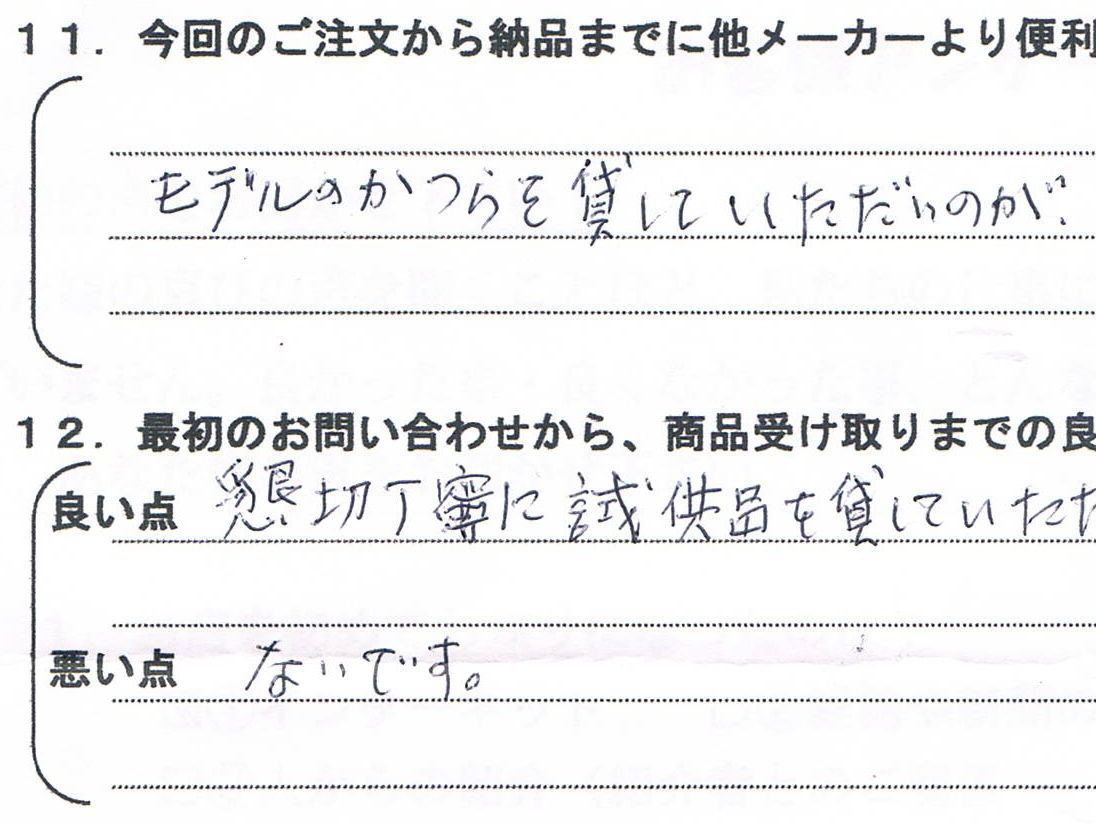 １１．今回のご注文から納品までに他メーカーより便利
モデルのかつらを貸していただいのが.
１２．最初のお問い合わせから、商品受け取りまでの良
良い点 懇切丁寧に試供品を貸していただ
悪い点 ないです。